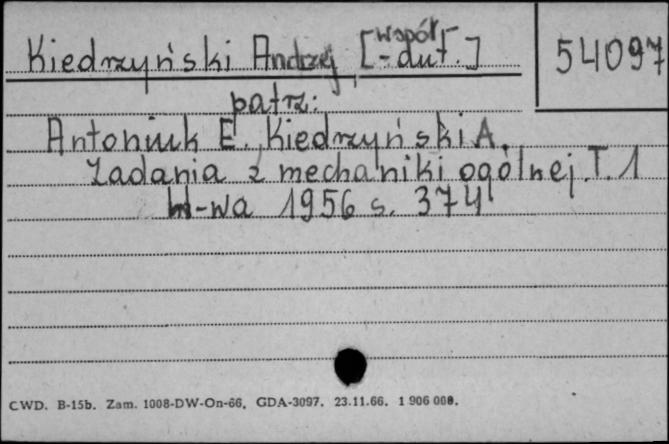 Kiedrzyński Andrzej [współ-aut.]
54097
patrz:
Antoniuk E., Kiedrzyński A.
Zadania z mechaniki ogólnej. T. 1
W-wa 1956 s. 374
CWD. B-15b. Zam. 1008-DW-On-66, GDA-3097. 23.11.66. 1 906 000.